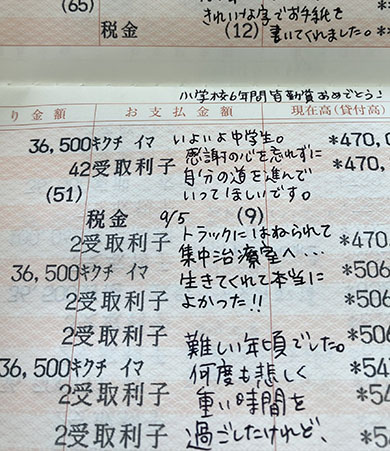 (65)
きれいな字でお手紙を
税金 (12) 書いてくれました。
小学校6年間皆勤賞おめでとう!
り金額 お支払金額 現在高(貸付高)
36,500キクチ イマ いよいよ中学生。 *470,
42受取利子 感謝の心を忘れずに *470,
(51) 自分の道を進んで
いってほしいです。
税金 9/5 (9)
2受取利子 トラックにはねられて *470,
36,500キクチ イマ 集中治療室へ… *506
2受取利子 生きてくれて本当に *506
よかった!!
2受取利子 *506
36,500キクチ イマ 難しい年頃でした。 *54
2受取利子 何度も悲しく *54
重い時間を
2受取利子 過ごしたけれど、 *5